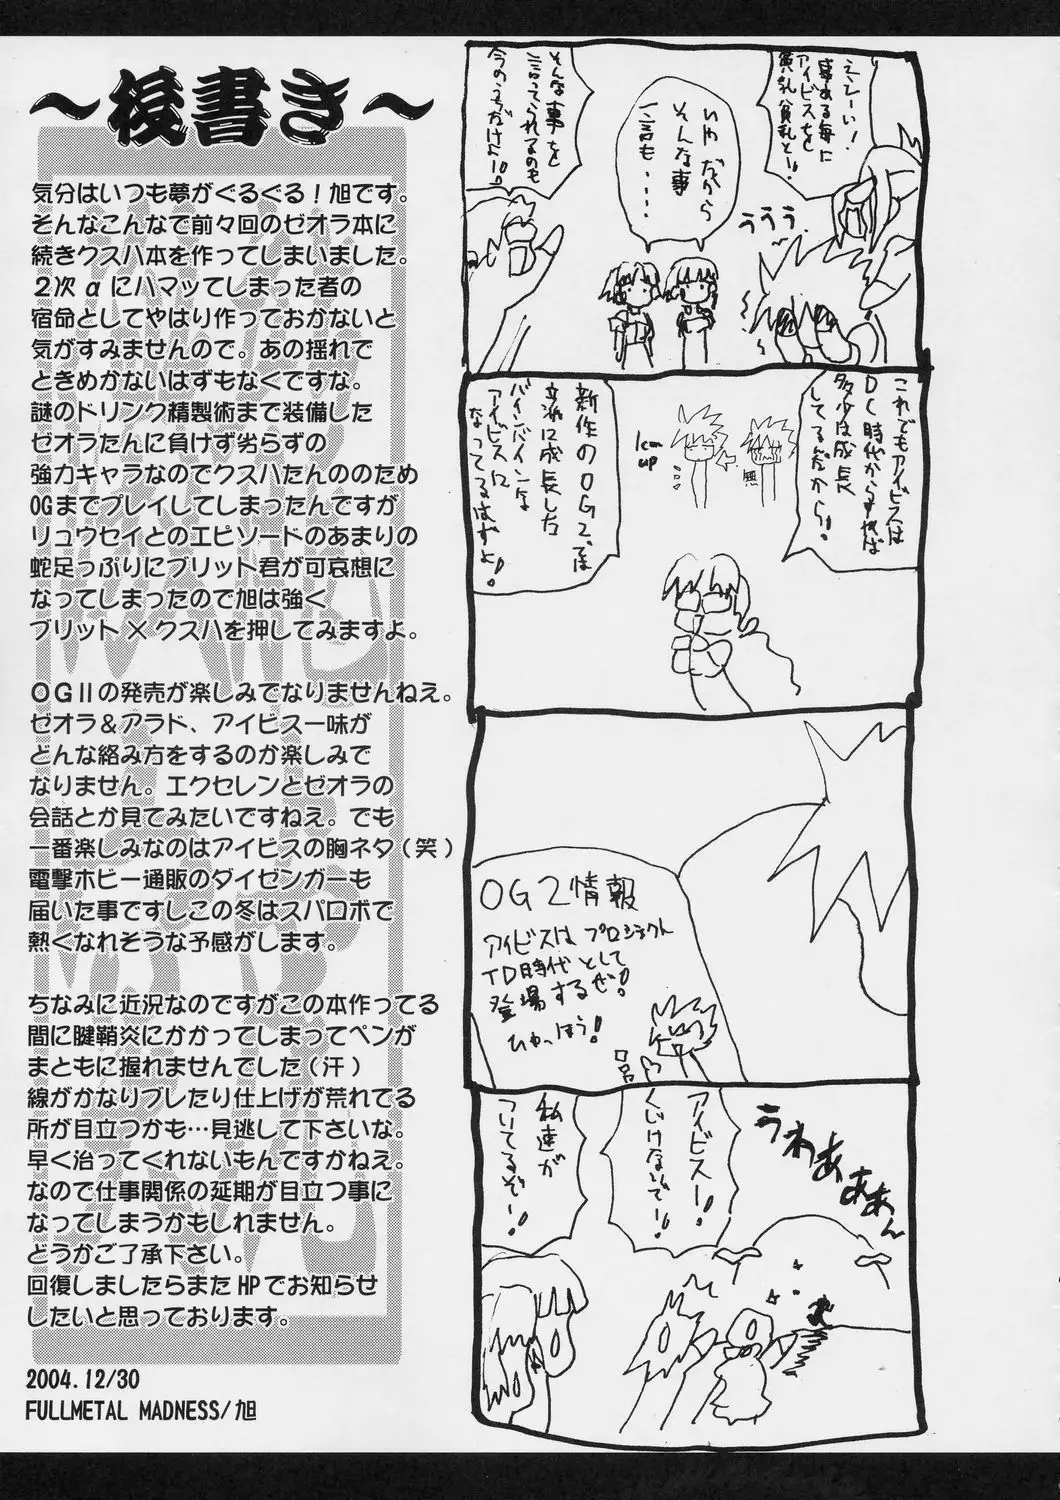 ～後書き～
気分はいつも夢がぐるぐる！旭です。
そんなこんなで前々回のゼオラ本に
続きクスハ本を作ってしまいました。
２次αにハマッてしまった者の
宿命としてやはり作っておかないと
気がすみませんので。あの揺れで
ときめかないはずもなくですな。
謎のドリンク精製術まで装備した
ゼオラたんに負けず劣らずの
強力キャラなのでクスハたんののため
OGまでプレイしてしまったんですが
リュウセイとのエピソードのあまりの
蛇足っぷりにブリット君が可哀想に
なってしまったので旭は強く
ブリット×クスハを押してみますよ。
ＯＧⅡの発売が楽しみでなりませんねえ。
ゼオラ＆アラド、アイビス一味が
どんな絡み方をするのか楽しみで
なりません。エクセレンとゼオラの
会話とか見てみたいですねえ。でも
一番楽しみなのはアイビスの胸ネタ（笑）
電撃ホビー通販のダイゼンガーも
届いた事ですしこの冬はスパロボで
熱くなれそうな予感がします。
ちなみに近況なのですがこの本作ってる
間に腱鞘炎にかかってしまってペンが
まともに握れませんでした（汗）
線がかなりブレたり仕上げが荒れてる
所が目立つかも…見逃して下さいな。
早く治ってくれないもんですかねえ。
なので仕事関係の延期が目立つ事に
なってしまうかもしれません。
どうかご了承下さい。
回復しましたらまた HPでお知らせ
したいと思っております。
2004.12/30
FULLMETAL MADNESS/旭
えぇーい！
事ある毎に
アイビスを
貧乳貧乳と!!
ううう
いや だから
そんな事
一言も・・・・
そんな事を
言ってられるのも
今のうちだけよ!!
これでもアイビスは
DC時代からすれば
多少は成長
してるんだから!
無
1cm
up
新作のOG2では
立派に成長した
バインバインな
アイビスに
なってるはずよ!
OG2情報
アイビスはプロジェクト
TD時代として
登場するぜ!
ひゃっほう!
うわああああん
アイビスー!
くじけないでー!
私達が
ついてるぞー!